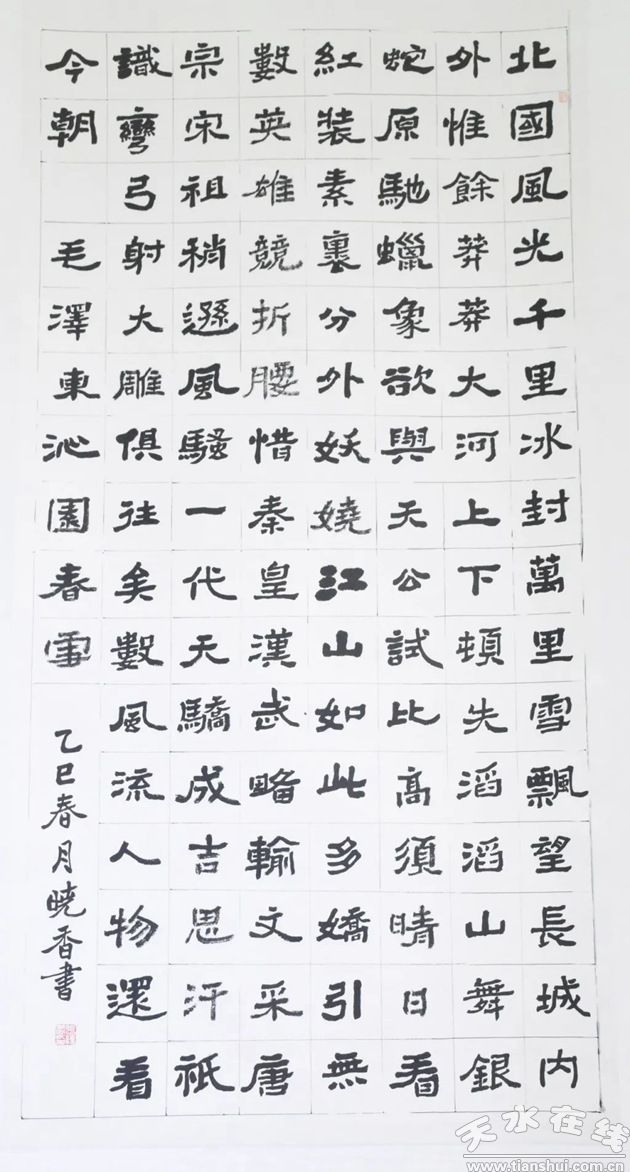 北國風光千里冰封萬里雪飄望長城內
外惟餘莽莽大河上下頓失滔滔山舞銀
蛇原馳蠟象欲與天公試比高須晴日看
紅裝素裹分外妖嬈江山如此多嬌引無
數英雄競折腰惜秦皇漢武略輸文采唐
宗宋祖稍遜風騷一代天驕成吉思汗祇
識彎弓射大雕俱往矣數風流人物還看
今朝 毛澤東沁園春雪
乙巳春月曉香書
天水在线
www.tianshui.com.cn